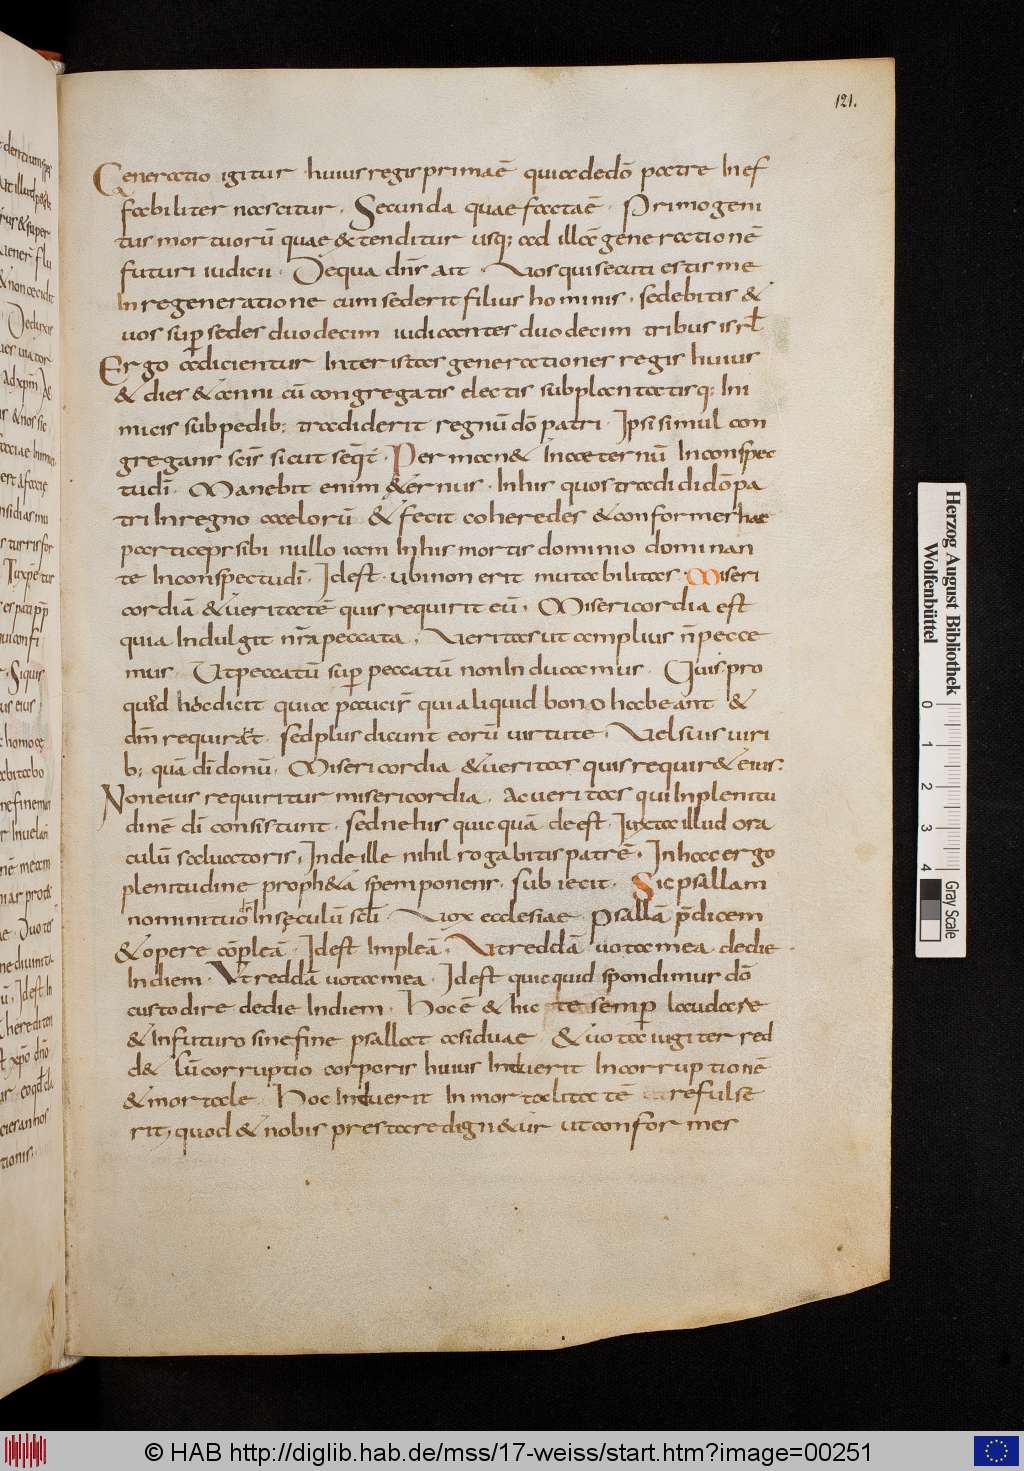 121.
Generatio igitur huius regis prima ē quia de dō patre Inef
fabiliter nascitur. Secunda quae facta ē. Primogeni
tus mortuorū quae & tenditur usq; ad illā generationē
futuri iudicii. De qua dn̄s ait. Vos qui secuti estis me
In regeneratione cum sederit filius hominis. sedebitis &
uos sup sedes duodecim iudicantes duodecim tribus isrl̄
Ergo adicientur Inter istas generationes regis huius
& dies & anni cū congregatis electis subplantatisq; Ini
micis sub pedib; tradiderit regnū dō patri. Ipsi simul con
gregant̄ sc̄is sicut seqt̄. Per man& In aeternū In conspec
tu dī. Manebit enim &ernus. In his quos tradidi dō pa
tri In regno caelorū & fecit coheredes & conformes hac
particeps sibi nullo iam In his mortis dominio dominan
te In conspectu dī. Idest. ubi non erit mutabilitas. Miseri
cordiā & ueritatē quis requirit eū. Misericordia est
quia Indulgit nr̄a peccata. Veritas ut compluis n̄ pecce
mus. Ut peccatū sup peccatū non Inducamus. Quis pro
quid hoc dicit quia paucis qui aliquid bono habeant &
dm̄ requirat. sed plus dicunt eorū uirtute. Vel suis uiri
b; quā dī donū. Misericordia & ueritas quis requir& eius:
Non eius requiritur misericordia. ac ueritas qui In plenitu
dinē dī consistunt. sed ne his quicquā deest. Iuxta illud ora
culū saluatoris. In de ille nihil rogabitis patrē. In hac ergo
plenitudine proph&ā spem ponens. sub iecit. Sic psallam
nomini tuo dn̄s In sęculū scl̄i. Vox ecclesiae. psallā p̄dicem
& opere cōpleā. Idest Impleā. Ut reddā uota mea de die
In diem. Ut reddā uota mea. Idest quicquid spondimus dō
custodire de die In diem. Hoc ē & hic te semp laudare
& In futuro sine fine psallat assiduae & uota iugiter red
d& cū corruptio corporis huius Induerit In corruptionē
& mortale. Hoc Induerit In mortalitatē refulse
rit, quod & nobis prestare dign&ur ut conformes
Herzog August Bibliothek
Wolfenbüttel
0 1 2 3 4
Gray Scale
© HAB http://diglib.hab.de/mss/17-weiss/start.htm?image=00251